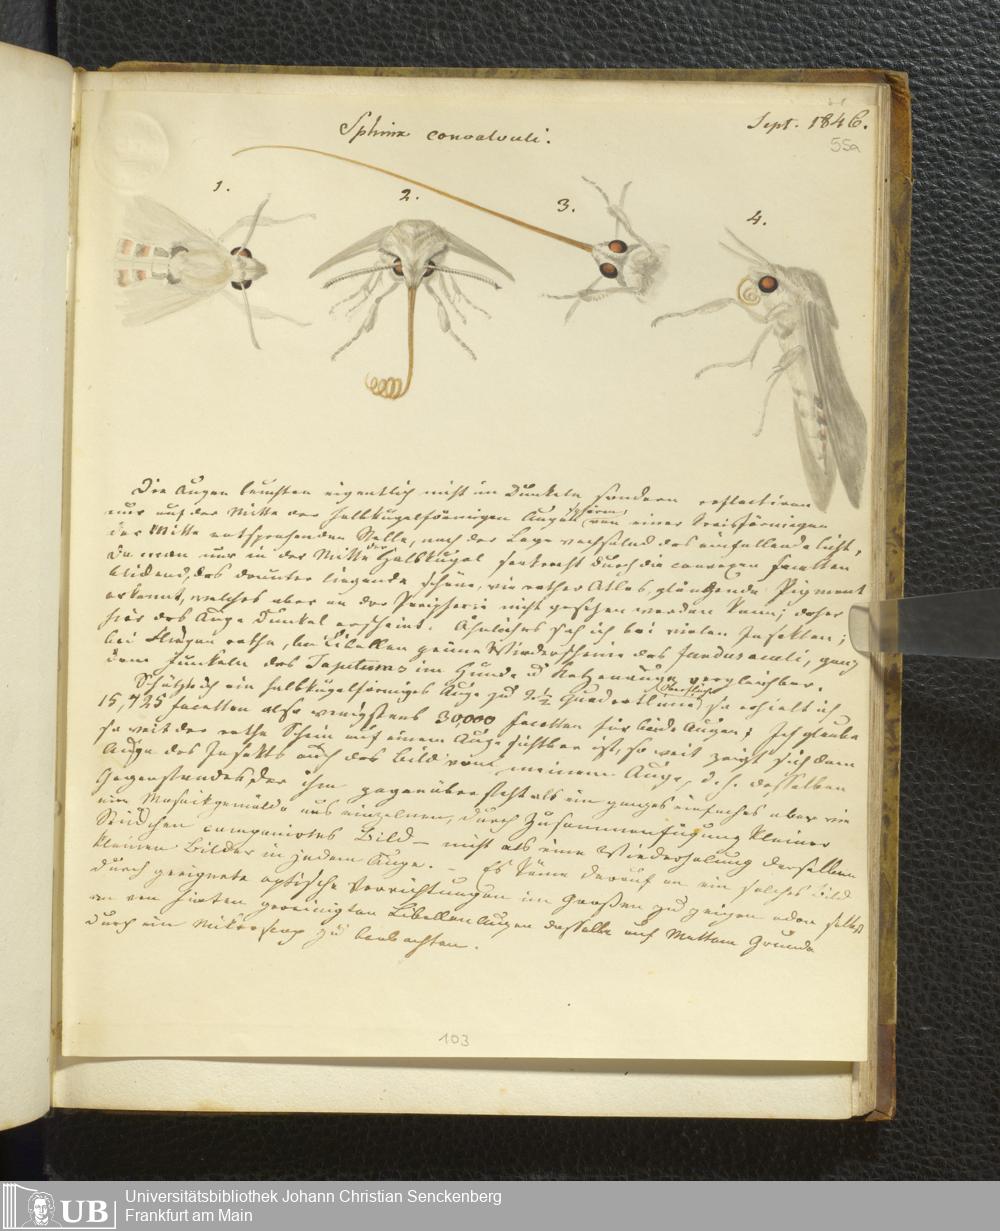 Sphinx convolvuli.
Sept. 1846.
55a
1.
2.
3.
4.
Die Augen leuchten eigentlich nicht im Dunkeln sondern reflectiren
nur auf der Mitte der halbkugelförmigen Augen von einer kreisförmigen
der Mitte entsprechenden Stelle, nach der Lage wechselnd das einfallende Licht,
Da man nur in der Mitte der Halbkugel senkrecht durch die convexen Facetten
blickend, das darunter liegende schöne, wie rother Atlas, glänzende Pigment
erkennt, welches aber an der Peripherie nicht gesehen werden kann; daher
hier das Auge Dunkel erscheint. Ähnliches sah ich bei vielen Insekten;
bei Fliegen rothe, bei Libellen grüne Wiederscheine des fundus oculi, ganz
dem Funkeln des Tapetums im Hunde u Katzenauge vergleichbar.
Schätzte ich ein halbkugelförmiges Auge zu 2 1/2 Quadratlinie Oberfläche, so erhielt ich
15,725 Facetten also wenigstens 30,000 Facetten für beide Augen; Ich glaube
so weit der rothe Schein auf einem Auge sichtbar ist, so weit zeigt sich dem
Auge des Insekts auch das Bild von meinem Auge, d. h. desselben
Gegenstandes, der ihm gegenüber steht als ein ganzes einfaches aber wie
ein Mosaikgemälde aus einzelnen, durch Zusammenfügung kleiner
Stückchen componirtes Bild – nicht als eine Wiederholung derselben
kleinen Bilder in jedem Auge. – Es käme darauf an ein solches Bild
durch geeignete optische Vorrichtungen im Großen zu zeigen oder selbst
an von hinten gereinigten Libellen Augen dasselbe auf Mattem Grunde
durch ein Mikroscop zu beobachten.
103
UB
Universitätsbibliothek Johann Christian Senckenberg
Frankfurt am Main